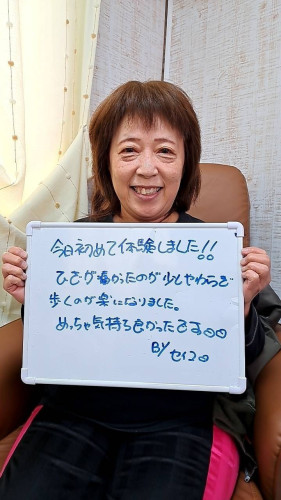 今日初めて体験しました!!
ひざが痛かったのが少しやわらぎ
歩くのが楽になりました。
めっちゃ気持ち良かったです○○
BY セイコ○